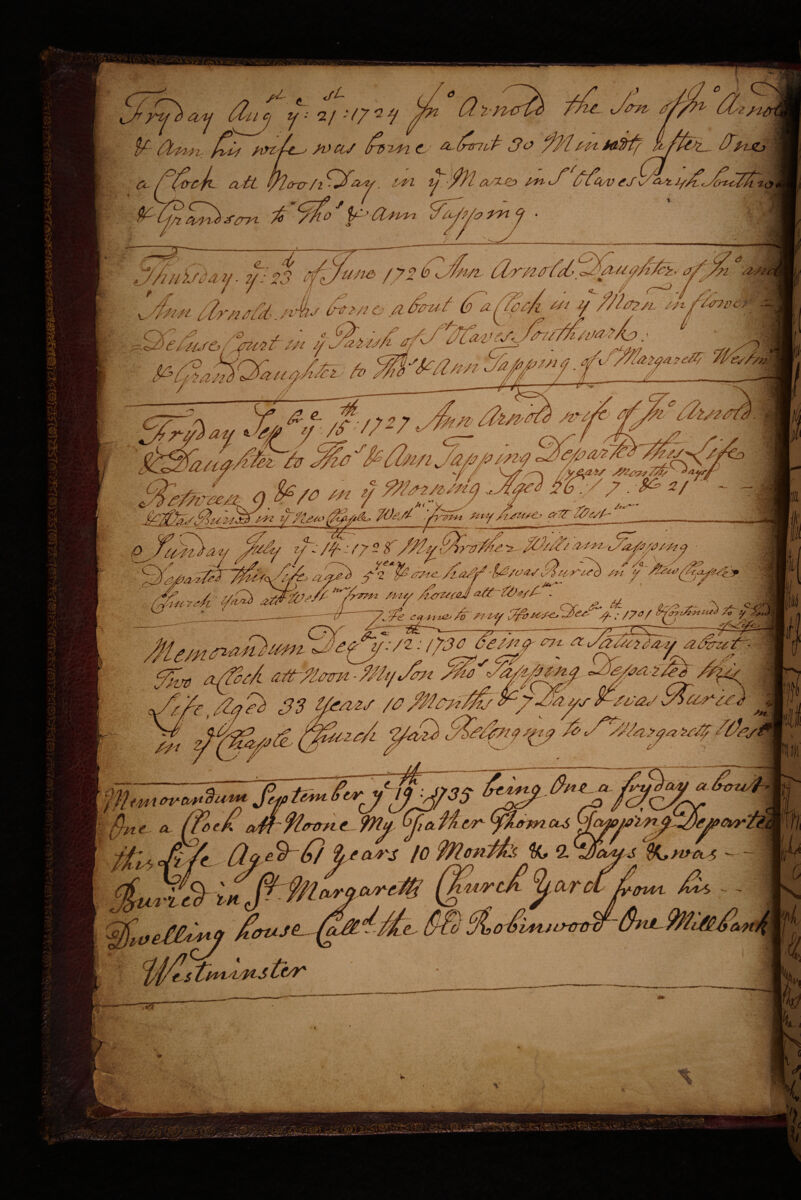 Fryday Aug.st ye: 21st: 1724 Jno Arnold the Son of Jno Arnold
& Ann his wife was borne about 30 Minuits after One
a Clock att Noon=Day. in ye Maze in St Olaves Parish Southwa
& Grandson to Tho.s & Ann Tapping.
Thursday. ye: 23d of June 1726 Ann Arnold. Daughter. of Jno and
Ann Arnold. was borne about 6 a Clock in ye Morn. in flower =
=Deluse Court in ye Parish of St Olaves Southwark.
& Grand Daughter to Tho.s & Ann Tapping. of St Margaretts Westmr
Fryday Sepr ye: 15th: 1727 Ann Arnold wife of Jno Arnold.
& Daughter to Tho.s & Ann Tapping Departed this Life
Between 9 & 10 in ye Morning. Aged 26 years / 7 months & 21 Days
& Was Buried in ye New Chapple. Westmr from my house. att Westmr
Sunday July ye: 14: 1728 My Brother William Tapping
Departed This Life aged 52 years & one half & was Buried in ye New Chaple
Church Yard att Westmr from my house att Westmr
He came to my House Decr 4th: 1701 & Continued to ye Day of
Memorandum Decr ye: 12th: 1730 being on a Saturday about
Two a Clock att Noon. My Son Tho.s Tapping Departed this
Life, Aged 33 Years 10 Months & 7 Days & was Buried
in ye Chaple Church Yard Belonging to St Margaretts Westmr
Memorandum September ye 19th: 1735 being One a fryday about
One a Clock att Noone My Father Thomas Tapping Departed
this Life Aged 61 Years 10 Months & 2 Days & was - -
Buried in St Margaretts Church Yard from his - -
Dwelling house Call'd the Old Robinwood One Millbank
Westminster